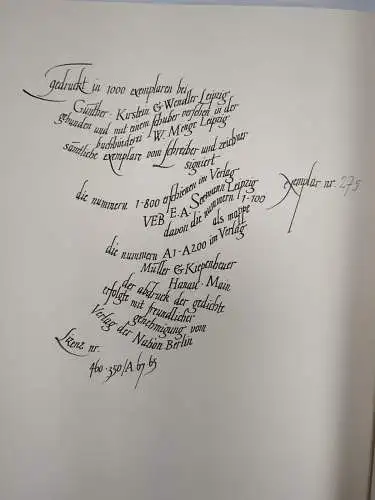 gedruckt in 1000 exemplaren bei
Günther · Kirstein & Wendler Leipzig
gebunden und mit einem schuber versehen in der
buchbinderei W. Menge Leipzig
sämtliche exemplare vom schreiber und zeichner
signiert
die nummern 1-800 erschienen im Verlag
VEB E.A. Seemann Leipzig
davon die nummern 1-100
als mappe
die nummern A1-A200 im Verlag
Müller & Kiepenheuer
Hanau · Main
der abdruck der gedichte
erfolgte mit freundlicher
genehmigung vom
Verlag der Nation Berlin
Lizenz nr.
460 · 350/A 67 65
exemplar nr. 275